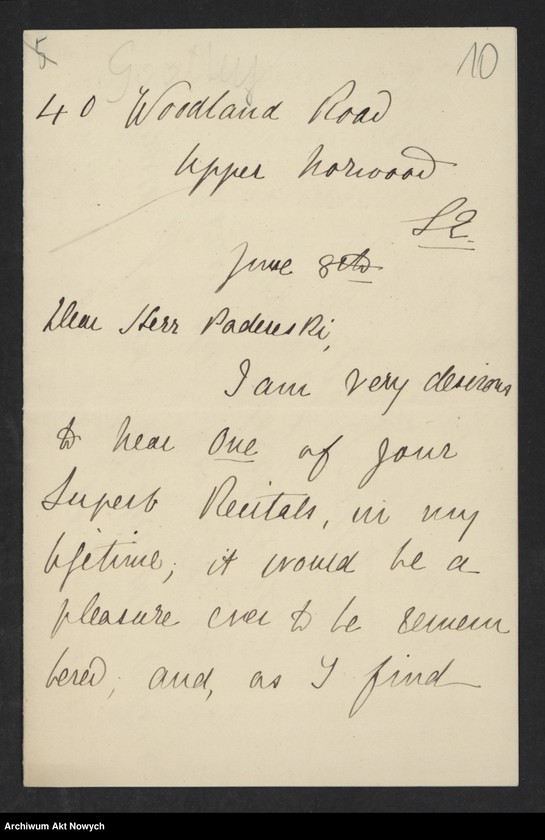 5
10
40 Woodland Road
Upper Norwood
SE.
June 8th
Dear Herr Padereski,
I am very desirous
to hear One of your
Superb Recitals, in my
lifetime; it would be a
pleasure ever to be remem
bered, and, as I find
Archiwum Akt Nowych